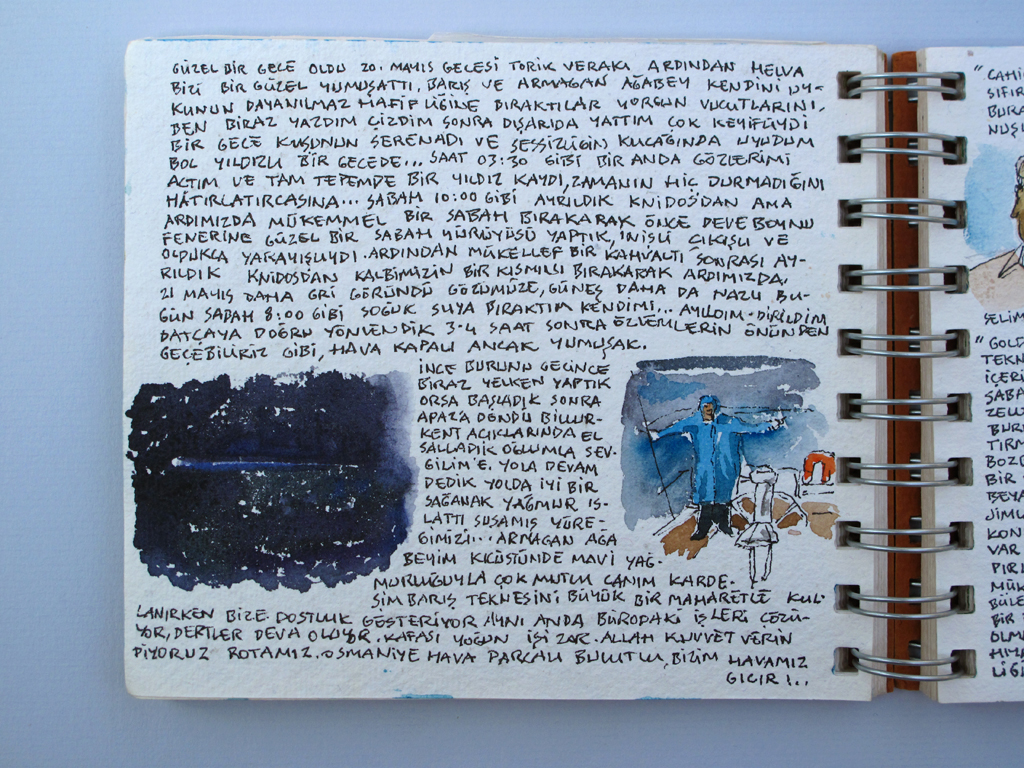 GÜZEL BİR GECE OLDU 20. MAYIS GECESİ TORİK VE RAKI ARDINDAN HELVA
BİZİ BİR GÜZEL YUMUŞATTI, BARIŞ VE ARMAĞAN AĞABEY KENDİNİ UY-
KUNUN DAYANILMAZ HAFİFLİĞİNE BIRAKTILAR YORGUN VUCUTLARINI,
BEN BİRAZ YAZDIM ÇİZDİM SONRA DIŞARIDA YATTIM ÇOK KEYİFLİYDİ
BİR GECE KUŞUNUN SERENADI VE SESSİZLİĞİN KUCAĞINDA UYUDUM
BOL YILDIZLI BİR GECEDE... SAAT 03:30 GİBİ BİR ANDA GÖZLERİMİ
AÇTIM VE TAM TEPEMDE BİR YILDIZ KAYDI, ZAMANIN HİÇ DURMADIĞINI
HATIRLATIRCASINA... SABAH 10:00 GİBİ AYRILDIK KNİDOS'DAN AMA
ARDIMIZDA MÜKEMMEL BİR SABAH BIRAKARAK ÖNCE DEVEBOYNU
FENERİNE GÜZEL BİR SABAH YÜRÜYÜŞÜ YAPTIK, İNİŞLİ ÇIKIŞLI VE
OLDUKÇA YARAYIŞLIYDI. ARDINDAN MÜKELLEF BİR KAHVALTI SONRASI AY-
RILDIK KNİDOS'DAN KALBİMİZİN BİR KISMINI BIRAKARAK ARDIMIZDA.
21 MAYIS DAHA GRİ GÖRÜNDÜ GÖZÜMÜZE, GÜNEŞ DAHA DA NAZLI BU-
GÜN SABAH 8:00 GİBİ SOĞUK SUYA BIRAKTIM KENDİMİ... AYILDIM-DİRİLDİM
DATÇAYA DOĞRU YÖNLENDİK 3-4 SAAT SONRA ÖZLEMLERİN ÖNÜNDEN
GEÇEBİLİRİZ GİBİ, HAVA KAPALI ANCAK YUMUŞAK.
İNCE BURUNU GEÇİNCE
BİRAZ YELKEN YAPTIK
ORSA BAŞLADIK SONRA
APAZ'A DÖNDÜ BİLLUR-
KENT AÇIKLARINDA EL
SALLADIK OĞLUMLA SEV-
GİLİM'E. YOLA DEVAM
DEDİK YOLDA İYİ BİR
SAĞANAK YAĞMUR IS-
LATTI SUSAMIŞ YÜRE-
ĞİMİZİ... ARMAĞAN AĞA
BEYİM KIÇÜSTÜNDE MAVİ YAĞ-
MURLUĞUYLA ÇOK MUTLU CANIM KARDE-
ŞİM BARIŞ TEKNESİNİ BÜYÜK BİR MAHARETLE KUL-
LANIRKEN BİZE DOSTLUK GÖSTERİYOR AYNI ANDA BÜRODAKİ İŞLERİ ÇÖZÜ-
YOR, DERTLER DEVA OLUYOR. KAFASI YOĞUN İŞİ ZOR. ALLAH KUVVET VERİN
DİYORUZ ROTAMIZ. OSMANİYE HAVA PARÇALI BULUTLU, BİZİM HAVAMIZ
GICIR!...
"CAHİ
SIFIR
BURA
NUŞ
SELİM
"GOLD
TEKN
İÇERİ
ŞABA
ZELL
BURU
TIRM
BOZD
BİR
BEYA
JİMLİ
KON
VAR
PIRI
MÜK
BÜLE
BİR
OLM
HIM
LİĞİ